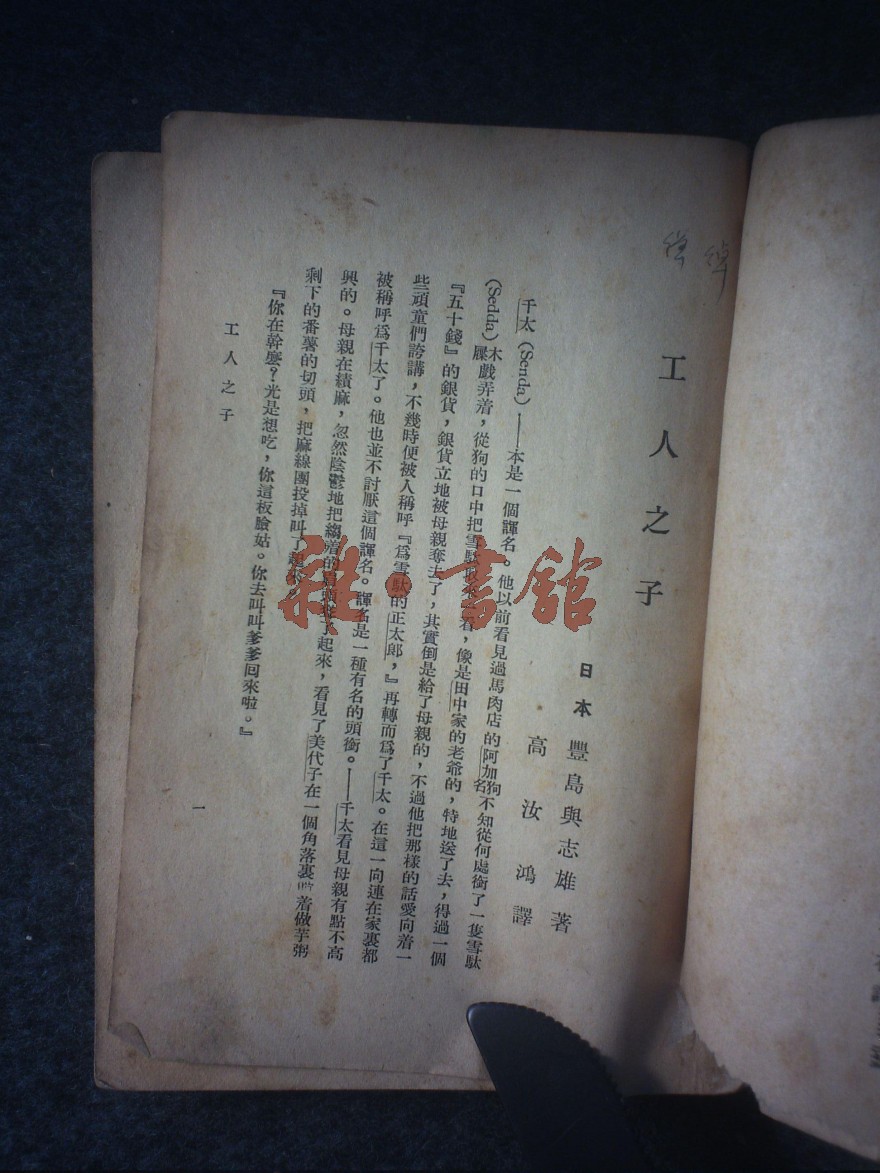 工人之子
日本 豐島與志雄著
高汝鴻譯
千太(Senda)——本是一個諢名。他以前看見過馬肉店的阿加狗名不知從何處銜了一隻雪駄
(Sedda)木屐戲弄着，從狗的口中把雪駄 看，像是田中家的老爺的，特地送了去，得過一個
『五十錢』的銀貨，銀貨立地被母親奪去了，其實倒是給了母親的，不過他把那樣的話愛向着一
些頑童們誇講，不幾時便被人稱呼『爲雪駄的正太郎，』再轉而爲了千太。在這一向連在家裏都
被稱呼爲千太了。他也並不討厭這個諢名。諢名是一種有名的頭銜。——千太看見母親有點不高
興的。母親在績麻，忽然陰鬱地把縐着的 了起來，看見了美代子在一個角落裏 着做芋粥
剩下的番薯的切頭，把麻線團投掉叫了起
『你在幹麼？光是想吃，你這板臉姑。你去叫叫爹爹回來啦。』
工人之子
一
雜·書館